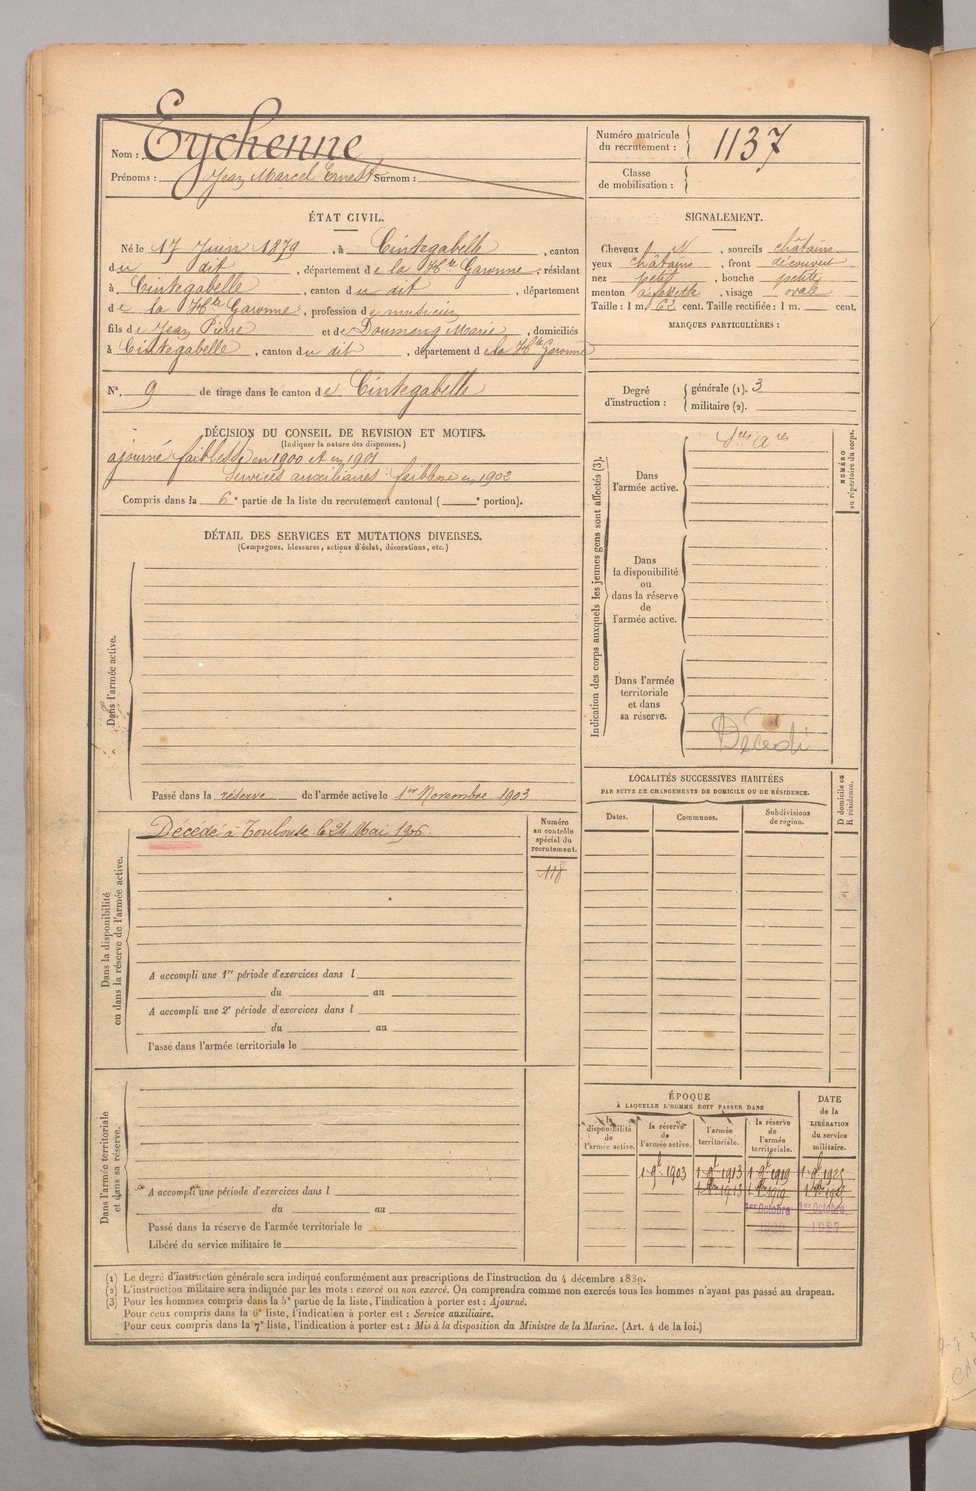 Nom : Eychenne
Prénoms : Jean Marcel Ernest Surnom :
Numéro matricule du recrutement : 1137
Classe de mobilisation :
ÉTAT CIVIL.
Né le 17 Juin 1879, à Cintegabelle, canton
du dit, département de la Hte Garonne, résidant
à Cintegabelle, canton du dit, département
de la Hte Garonne, profession de musicien
fils de Jean Pierre et de Doumeng Marie, domiciliés
à Cintegabelle, canton du dit, département de la Hte Garonne
SIGNALEMENT.
Cheveux, sourcils châtains
yeux châtains, front découvert
nez petit, bouche petite
menton à fossette, visage ovale
Taille : 1 m. 62 cent. Taille rectifiée : 1 m. cent.
MARQUES PARTICULIÈRES :
N° 9 de tirage dans le canton de Cintegabelle
Degré d'instruction : générale (1). 3
militaire (2).
DÉCISION DU CONSEIL DE REVISION ET MOTIFS.
(Indiquer la nature des dispenses.)
ajourné faiblesse en 1900 et en 1901
Services auxiliaires : faiblesse en 1902
Compris dans la 6e partie de la liste du recrutement cantonal ( e portion).
DÉTAIL DES SERVICES ET MUTATIONS DIVERSES.
(Campagnes, blessures, actions d'éclat, décorations, etc.)
Dans l'armée active.
Passé dans la réserve de l'armée active le 1er Novembre 1903
Indication des corps auxquels les jeunes gens sont affectés (3).
NUMÉRO au répertoire du corps.
Dans l'armée active.
Sces Ares
Dans la disponibilité ou dans la réserve de l'armée active.
Dans l'armée territoriale et dans sa réserve.
Décédé
Dans la disponibilité ou dans la réserve de l'armée active.
Décédé à Toulouse le 24 Mai 1906.
Numéro au contrôle spécial du recrutement.
118
A accompli une 1re période d'exercices dans l
du au
A accompli une 2e période d'exercices dans l
du au
Passé dans l'armée territoriale le
LOCALITÉS SUCCESSIVES HABITÉES
PAR SUITE DE CHANGEMENTS DE DOMICILE OU DE RÉSIDENCE.
D domicile ou R résidence.
Dates.
Communes.
Subdivisions de région.
Dans l'armée territoriale et dans sa réserve.
A accompli une période d'exercices dans l
du au
Passé dans la réserve de l'armée territoriale le
Libéré du service militaire le
ÉPOQUE
À LAQUELLE L'HOMME DOIT PASSER DANS
la disponibilité de l'armée active.
la réserve de l'armée active.
l'armée territoriale.
la réserve de l'armée territoriale.
DATE de la LIBÉRATION du service militaire.
1 9b 1903
1 9b 1913
1 9b 1919
1er Octobre
1er Octobre
1927
(1) Le degré d'instruction générale sera indiqué conformément aux prescriptions de l'instruction du 4 décembre 1889.
(2) L'instruction militaire sera indiquée par les mots : exercé ou non exercé. On comprendra comme non exercés tous les hommes n'ayant pas passé au drapeau.
(3) Pour les hommes compris dans la 5e partie de la liste, l'indication à porter est : Ajourné.
Pour ceux compris dans la 6e liste, l'indication à porter est : Service auxiliaire.
Pour ceux compris dans la 7e liste, l'indication à porter est : Mis à la disposition du Ministre de la Marine. (Art. 4 de la loi.)